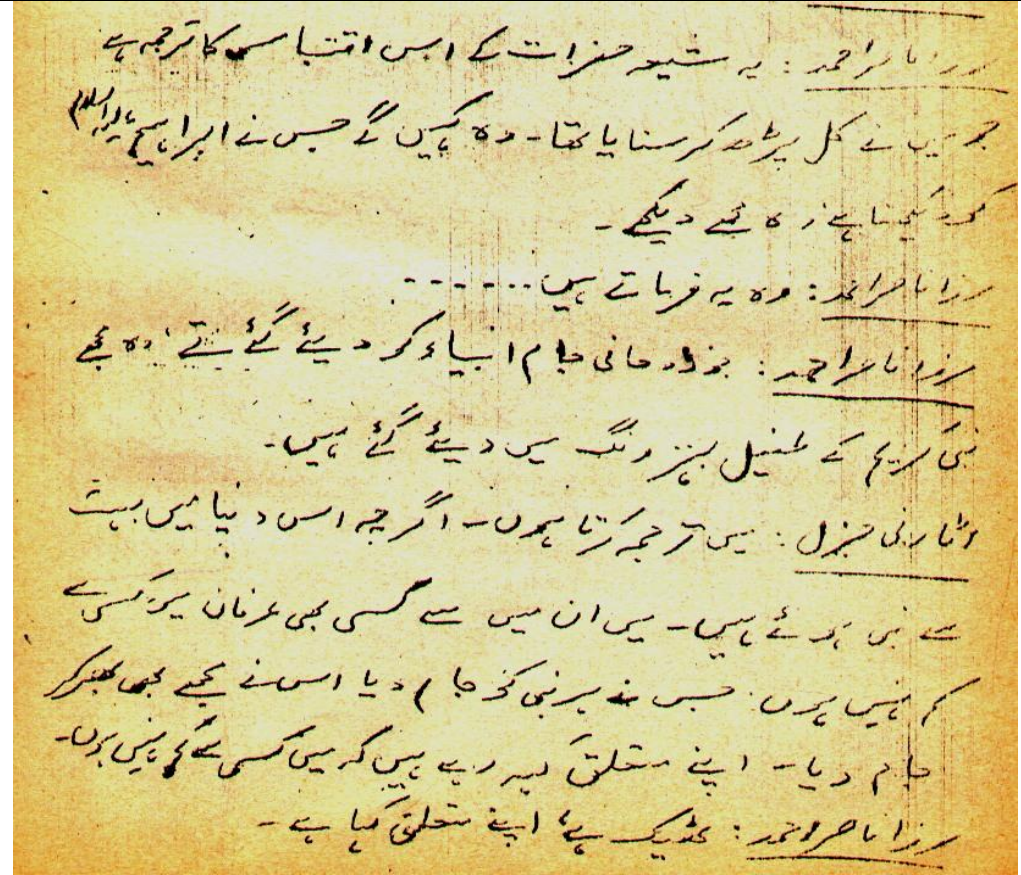 مرزا ناصر احمد: یہ شیعہ حضرات کے اس اقتباس کا ترجمہ ہے
جو میں نے کل پڑھ کر سنایا تھا۔ وہ کہیں گے جس نے ابراہیم علیہ السلام
کو دیکھنا ہے وہ مجھے دیکھے۔
مرزا ناصر احمد: وہ یہ فرماتے ہیں ......
مرزا ناصر احمد: جو روحانی جام انبیاء کو دیئے گئے تھے، وہ مجھے
نبی کریم کے طفیل بہتر رنگ میں دیئے گئے ہیں۔
اٹارنی جنرل: میں ترجمہ کرتا ہوں۔ اگرچہ اس دنیا میں بہت
سے نبی ہوئے ہیں۔ میں ان میں سے کسی بھی عرفان میں کسی سے
کم نہیں ہوں۔ جس نے ہر نبی کو جام دیا اس نے مجھے بھی بھر کر
جام دیا۔ اپنے متعلق کہہ رہے ہیں کہ میں کسی سے کم نہیں ہوں۔
مرزا ناصر احمد: ٹھیک ہے، اپنے متعلق کہا ہے۔